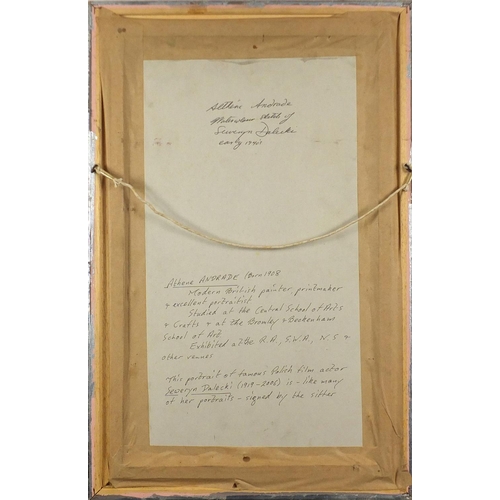 Althène Andrade
Watercolour sketch of
Seweryn Dalecki
early
Althene ANDRADE (Born 1908
Modern British painter, printmaker
& excellent portraitist.
Studied at the Central School of Arts
& Crafts & at the Bromley & Beckenham
School of Art
Exhibited at the R.A., S.W.A., N.S &
other venues
This portrait of famous Polish film actor
Seweryn Dalecki (1919-2005) is - like many
of her portraits - signed by the sitter